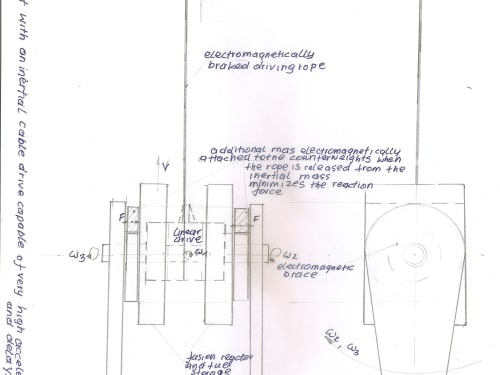 electromagnetically
braked driving rope
additional mas electromagnetically
attached to the counterweights when
the rope is released from the
inertial mass
minimizes the reaction
force
V
F
F
Linear
drive
ω3
ω2
electromagnetic
brace
ω2, ω3
fusion reactor
and fuel
storage
with an inertial cable drive capable of very high accele
and delay